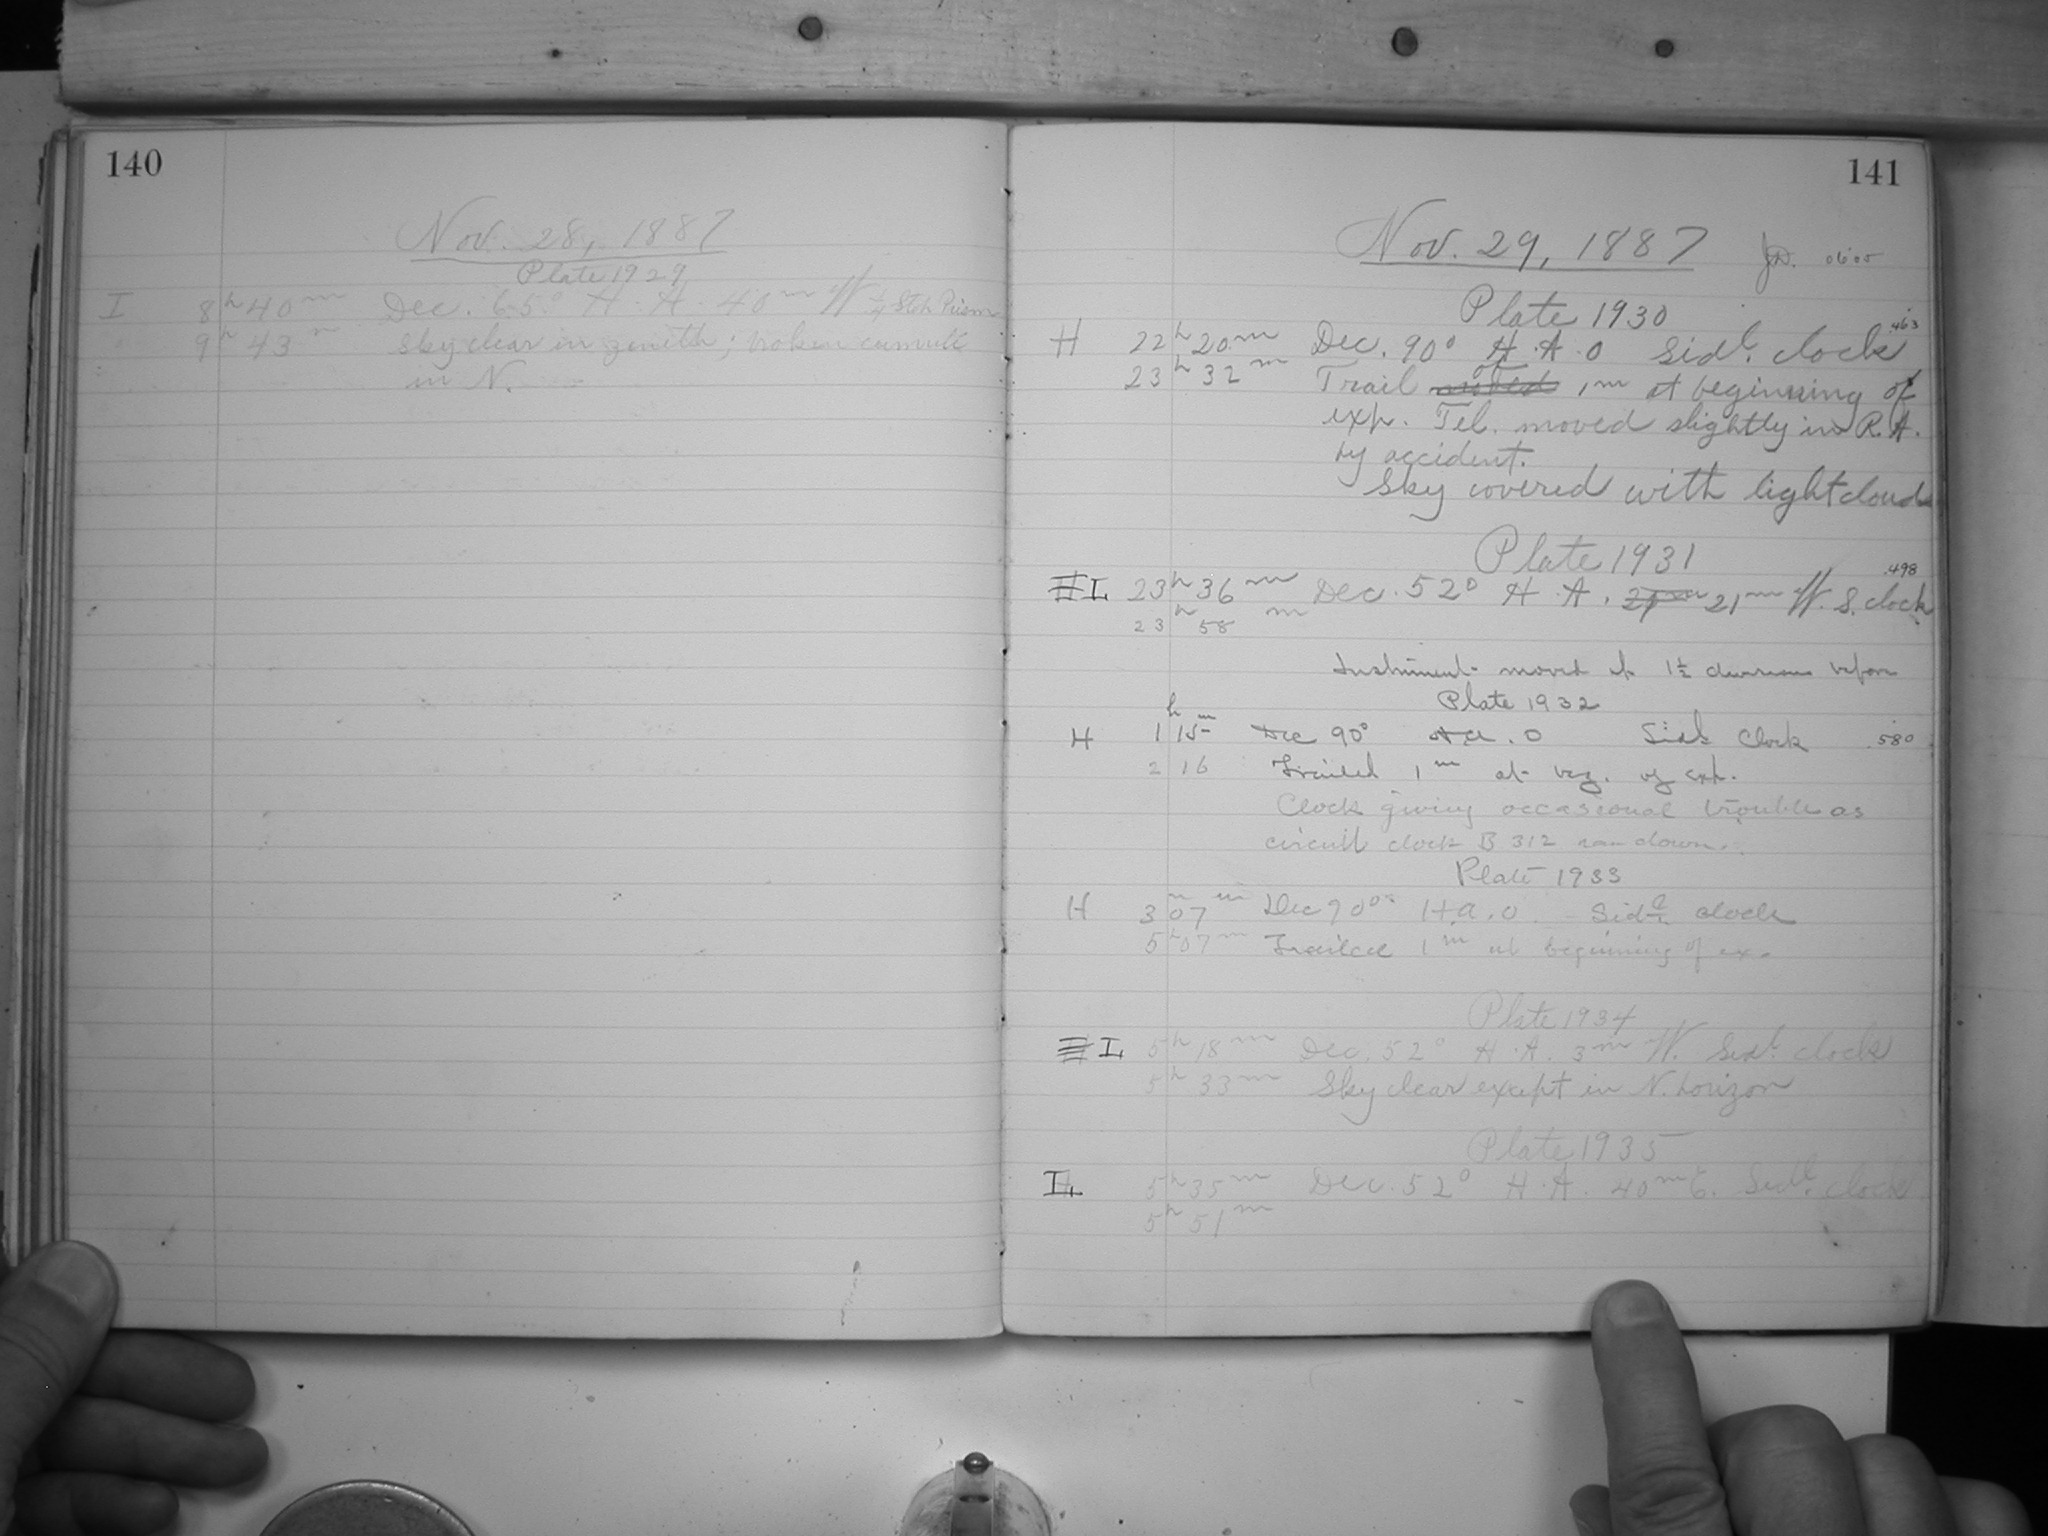 140
Nov. 28, 1887
Plate 1929
I 8h 40m Dec. 65° H.A. 40m W Prism
9h 43m Sky clear in zenith; broken cumuli
in N.
141
Nov. 29, 1887 J.D.
Plate 1930
.463
H 22h 20m Dec. 90° H.A. 0 Sidl. clock
23h 32m Trail 1m at beginning of
exp. Tel. moved slightly in R.A.
by accident.
Sky covered with light clouds
Plate 1931
.498
IL 23h 36m Dec. 52° H.A. 21m W. S. clock
23h 58m
Instrument moved up 1½ divisions before
Plate 1932
H 1h 15m Dec 90° H.A. 0 Sidl. Clock .580
2 16 Trailed 1m at beg. of exp.
Clock giving occasional trouble as
circuit clock B 312 ran down.
Plate 1933
H 3 07m Dec 90° H.A. 0. Sidl. clock
5h 07m Trailed 1m at beginning of ex.
Plate 1934
IL 5h 18m Dec. 52° H.A. 3m W. Sidl. clock
5h 33m Sky clear except in N. horizon
Plate 1935
IL 5h 35m Dec. 52° H.A. 40m E. Sidl. clock
5h 51m